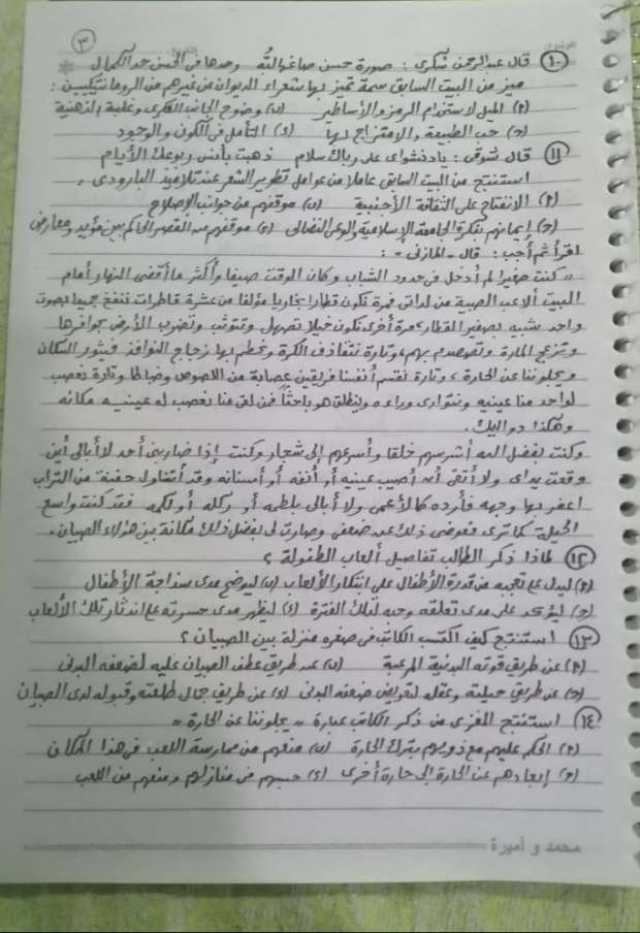 ٣
١٠ قال عبدالرحمن شكرى : صورة حسن صاغها الله وحدها فى الحسن حد الكمال
ميز من البيت السابق سمة تميز بها شعراء الديوان عن غيرهم من الرومانتيكيين :
(٢) الميل لاستخدام الرمز والأساطير (ب) وضوح الجانب الفكرى وغلبة الذهنية
(ح) حب الطبيعة والامتزاج بها (٤) التأمل فى الكون والوجود
١١ قال شوقى : يا دنشواى على رباك سلام ذهبت بأنس ربوعك الأيام
استنتج من البيت السابق عاملا من عوامل تطوير الشعر عند تلاميذ البارودى .
(٢) الانفتاح على الثقافة الأجنبية (ب) موقفهم من جوانب الإصلاح
(ح) إيمانهم بفكرة الجامعة الإسلامية والوعى النضالى (٤) موقفهم من القصر الحاكم بين مؤيد ومعارض
اقرأ ثم أجب : قال المازنى :
" كنت صغيرا لم أدخل فى حدود الشباب وكان الوقت صيفا وأكثر ما أقضى النهار أمام
البيت ألاعب الصبية من لداتى فمرة نكون قطارا بخاريا مؤلفا من عشرة قاطرات تنفخ جميعا بصوت
واحد شبيه بصفير القطار ومرة أخرى نكون خيلا تصهل وتتوثب وتضرب الأرض بحوافرها
وتزعج المارة وتصطدم بهم ، وتارة نتقاذف الكرة ونحطم بها زجاج النوافذ فيثور السكان
ويجلوننا عن الحارة ، وتارة نقسم أنفسنا فريقين عصابة من اللصوص وضباطا وتارة نعصب
لواحد منا عينيه ونتوارى وراءه وينطلق هو باحثا فمن لقى منا نعصب له عينيه مكانه
وهكذا دواليك .
وكنت بفضل الله أشرسهم خلقا وأسرعهم إلى شجار وكنت إذا ضاربنى أحد لا أبالى أين
وقعت يداى ولا أتقى أن أصيب عينيه أو أنفه أو أسنانه وقد أتناول حفنة من التراب
أعفر بها وجهه فأرده كالأعمى ولا أبالى بلطمه أو ركله أو لكمه فقد كنت واسع
الحيلة كما ترى فعوضنى ذلك عن ضعفى وصارت لى بفضل ذلك مكانة بين هؤلاء الصبيان .
١٢ لماذا ذكر الكاتب تفاصيل ألعاب الطفولة ؟
(٢) ليدل على تعجبه من قدرة الأطفال على ابتكار الألعاب (ب) ليوضح مدى سذاجة الأطفال
(ح) ليؤكد على مدى تعلقه وحبه لتلك الفترة (٤) ليظهر مدى حسرته على اندثار تلك الألعاب
١٣ استنتج كيف اكتسب الكاتب فى صغره منزلة بين الصبيان ؟
(٢) عن طريق قوته البدنية المرعبة (ب) عن طريق عطف الصبيان عليه لضعفه البدنى
(ح) عن طريق حيلته وعقله لتعويض ضعفه البدنى (٤) عن طريق جمال طلعته وقبوله لدى الصبيان
١٤ استنتج المغزى من ذكر الكاتب عبارة " يجلوننا عن الحارة "
(٢) الحكم عليهم مع ذويهم بترك الحارة (ب) منعهم من ممارسة اللعب فى هذا المكان
(ح) إبعادهم عن الحارة إلى حارة أخرى (٤) حبسهم فى منازلهم ومنعهم من اللعب
محمد و أميرة